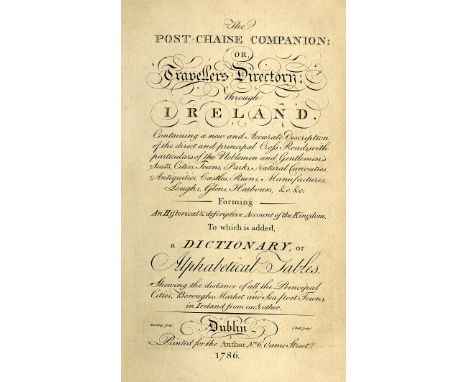 The
POST-CHAISE COMPANION:
OR,
Travellers Directory,
through
IRELAND.
Containing a new and Accurate Description
of the direct and principal Cross Roads, with
particulars of the Noblemen and Gentlemen's
Seats, Cities, Towns, Parks, Natural Curiosities,
Antiquities, Castles, Ruins, Manufactures,
Loughs, Glens, Harbours, &c. &c.
Forming
An Historical & descriptive Account of the Kingdom.
To which is added,
a DICTIONARY, or
Alphabetical Tables.
Shewing the distance of all the Principal
Cities, Boroughs, Market and Sea Port Towns,
in Ireland from each other.
Dublin
Printed for the Author No. 6, Dame Street
1786.